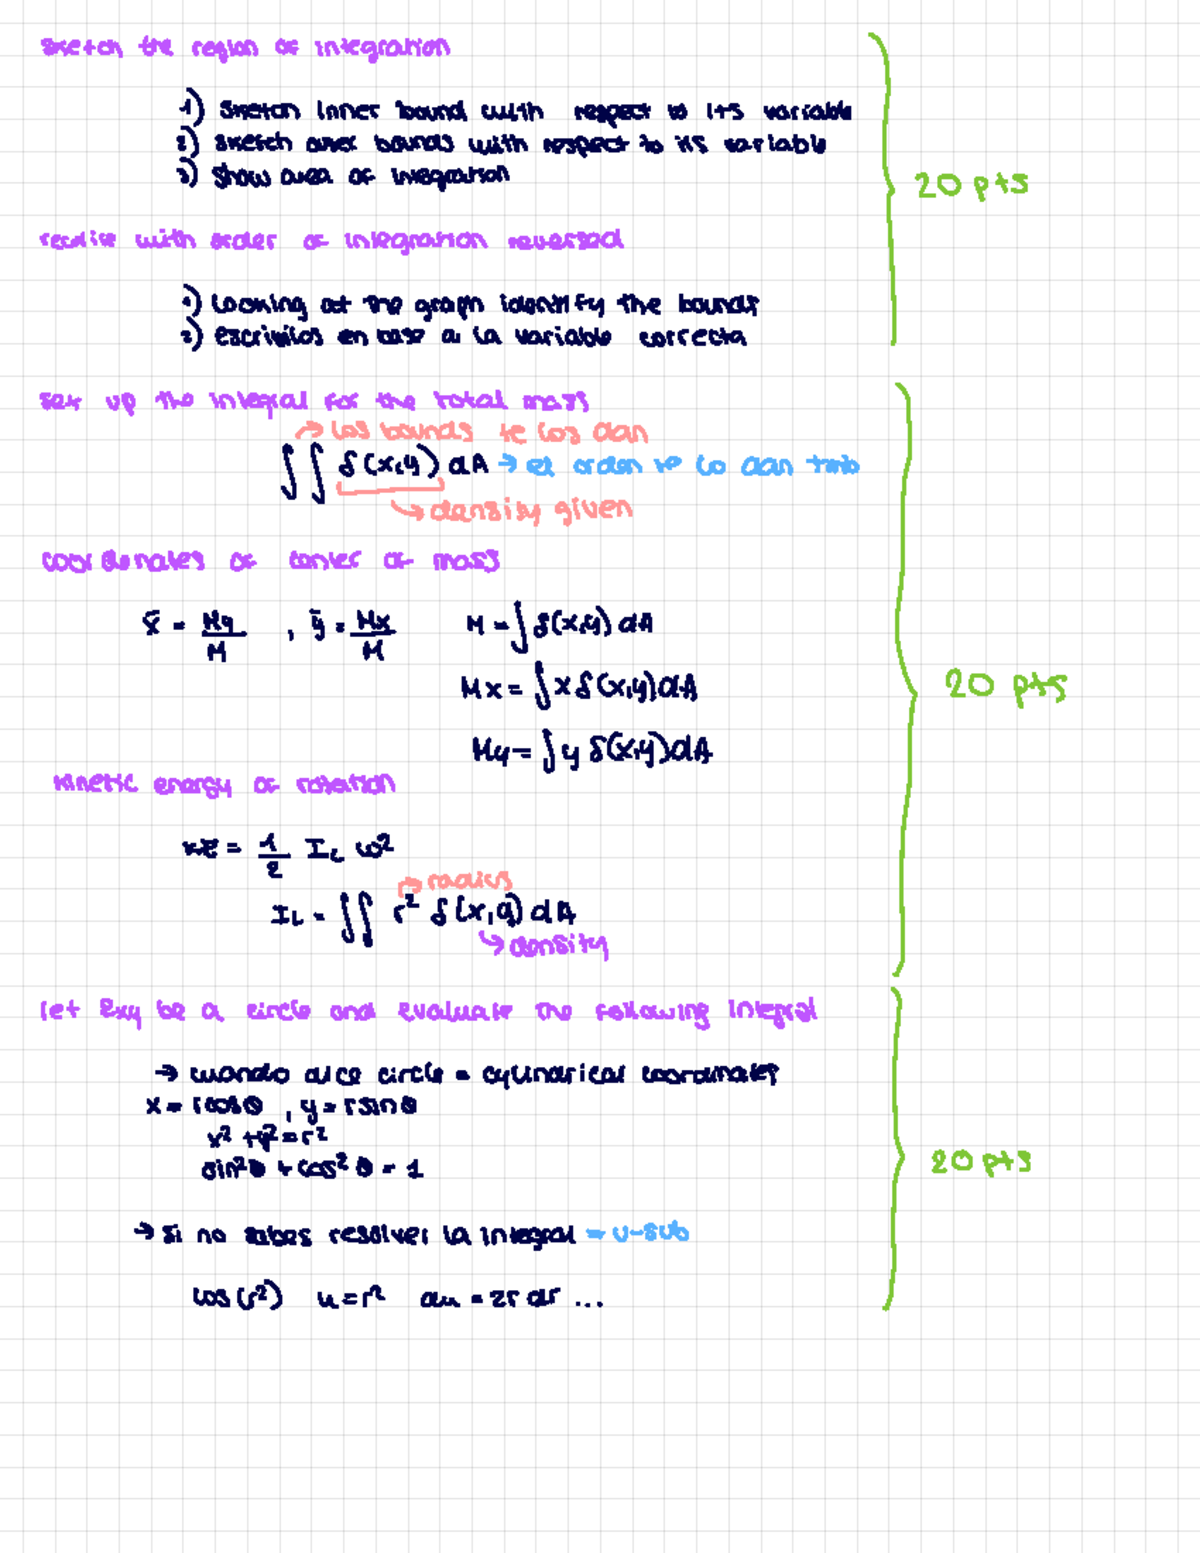 sketch the region of integration
1) sketch inner bound with respect to its variable
2) sketch outer bounds with respect to its variable
3) show area of integration
20 pts
rewrite with order of integration reversed
1) looking at the graph identify the bounds
2) escrivilos en base a la variable correcta
set up the integral for the total mass
→ los bounds te los dan
∫∫ δ(x,y) dA → el orden te lo dan tmb
↳ density given
coordenates of center of mass
x̄ = My/M , ȳ = Mx/M M = ∫ δ(x,y) dA
Mx = ∫ x δ(x,y) dA
20 pts
My = ∫ y δ(x,y) dA
kinetic energy of rotation
KE = 1/2 I_L ω²
→ radius
I_L = ∫∫ r² δ(x,y) dA
↳ density
let Rxy be a circle and evaluate the following integral
→ cuando dice circle = cylindrical coordinates
x = rcosθ , y = rsinθ
x² + y² = r²
sin²θ + cos²θ = 1
20 pts
→ si no sabes resolver la integral = u-sub
cos(r²) u = r² du = 2r dr ...